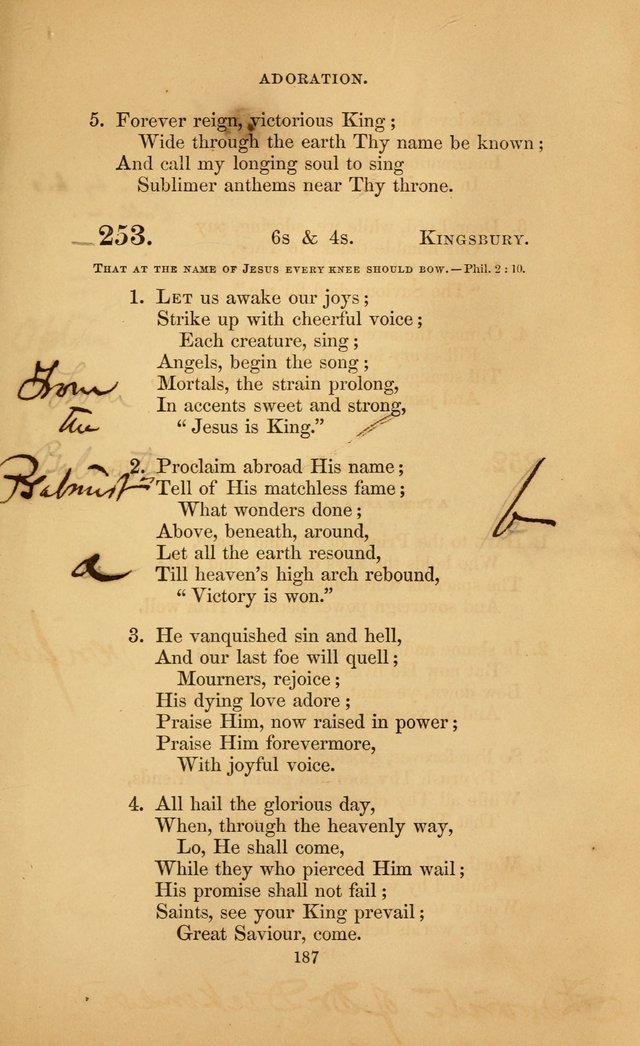 ADORATION.
5. Forever reign, victorious King;
Wide through the earth Thy name be known;
And call my longing soul to sing
Sublimer anthems near Thy throne.
253. 6s & 4s. KINGSBURY.
THAT AT THE NAME OF JESUS EVERY KNEE SHOULD BOW.—Phil. 2:10.
1. LET us awake our joys;
Strike up with cheerful voice;
Each creature, sing;
Angels, begin the song;
Mortals, the strain prolong,
In accents sweet and strong,
“Jesus is King.”
From
the
Psalmist
2. Proclaim abroad His name;
Tell of His matchless fame;
What wonders done;
Above, beneath, around,
Let all the earth resound,
Till heaven's high arch rebound,
“Victory is won.”
a
b
3. He vanquished sin and hell,
And our last foe will quell;
Mourners, rejoice;
His dying love adore;
Praise Him, now raised in power;
Praise Him forevermore,
With joyful voice.
4. All hail the glorious day,
When, through the heavenly way,
Lo, He shall come,
While they who pierced Him wail;
His promise shall not fail;
Saints, see your King prevail;
Great Saviour, come.
187